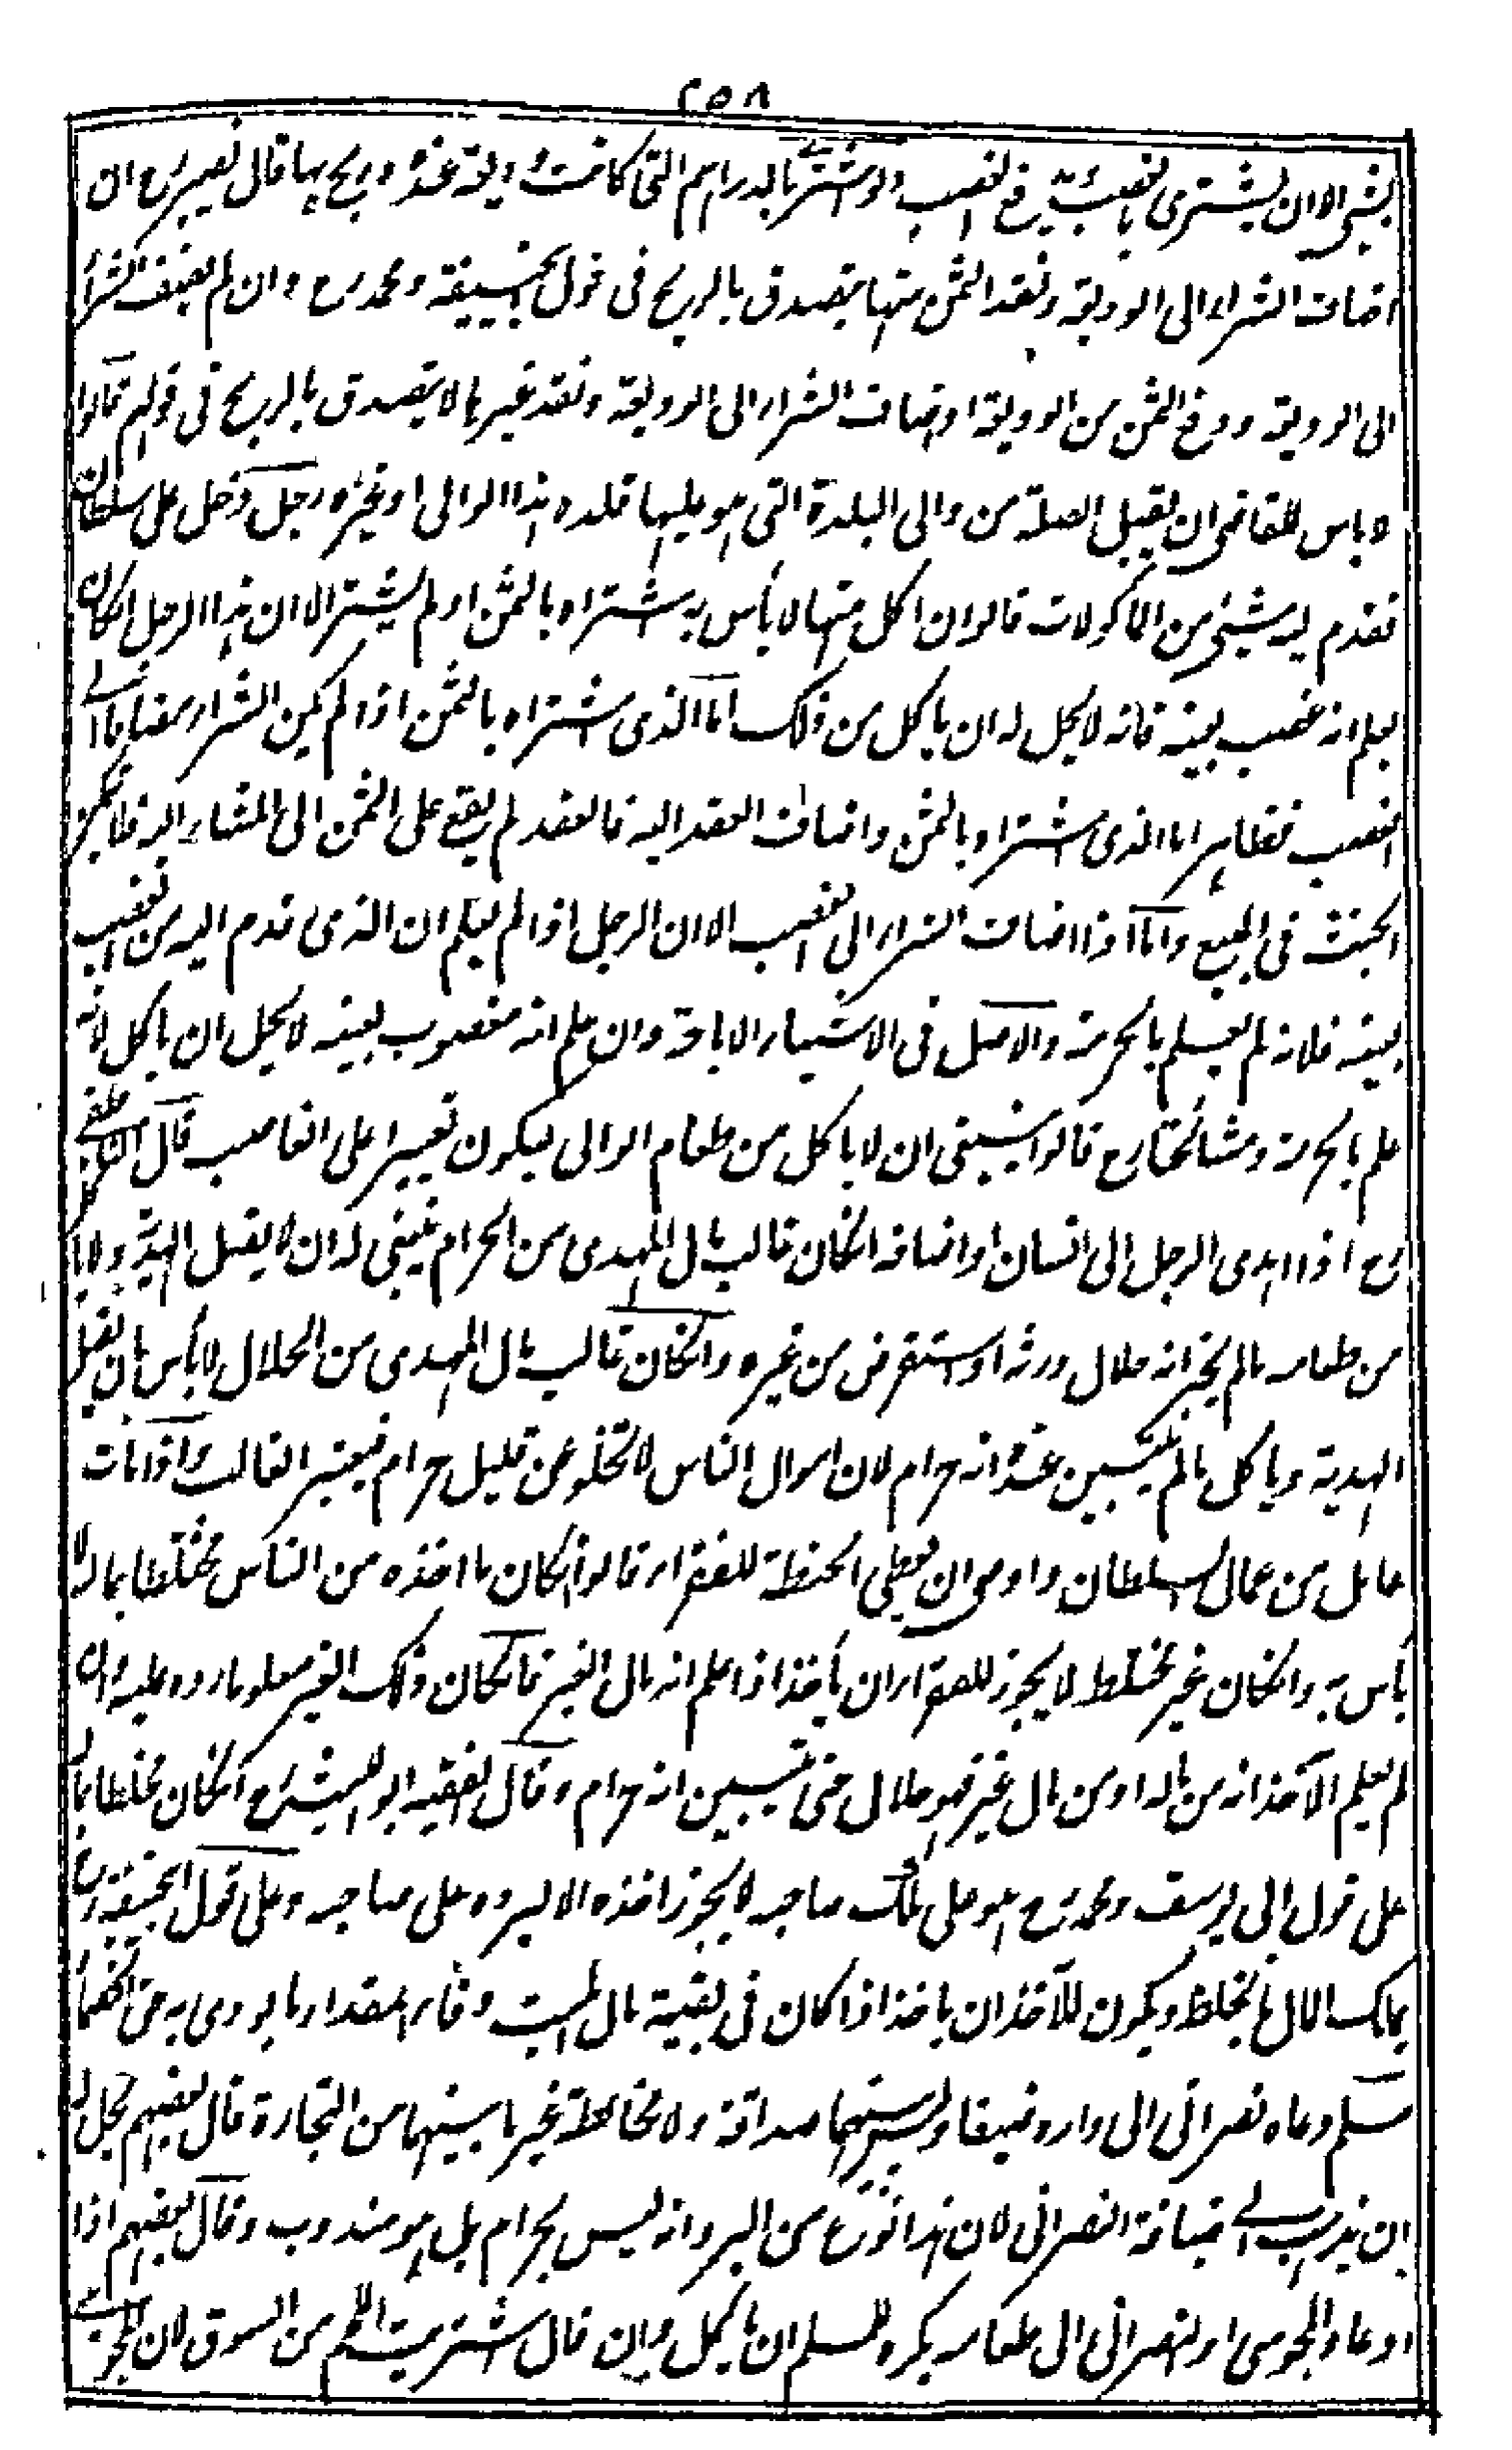 ٢٥٨
بشئ الا ان يشترى بالغصب ثم يدفع الغصب ولو اشترى بالدراهم التى كانت وديعة عنده وربح بها قال نصير رح ان
اضاف الشراء الى الوديعة ونقد الثمن منها يتصدق بالربح فى قول ابيحنيفة ومحمد رح وان لم يضف الشراء
الى الوديعة ودفع الثمن من الوديعة او اضاف الشراء الى الوديعة ونقد غيرها لا يتصدق بالربح فى قولهم قالوا
لا باس للقاضى ان يقبل الصلة من والى البلدة التى هو عليها قلده هذا الوالى او غيره رجل دخل على سلطان
فقدم اليه شيئ من الماكولات قالوا ان اكل منها لا بأس به اشتراه بالثمن او لم يشتر الا ان هذا الرجل انكان
يعلم انه غصب بعينه فانه لا يحل له ان ياكل من ذلك اما الذى اشتراه بالثمن اذا لم يكن الشراء مضافا الى
الغصب فظاهر اما الذى اشتراه بالثمن واضاف العقد اليه فالعقد لم يقع على الثمن الى المشار اليه فلا يتمكن
الخبث فى المبيع واما اذا اضاف الشراء الى الغصب الا ان الرجل اذا لم يعلم ان الذى قدم اليه من الغصب
بعينه فلانه لم يعلم بالحرمة والاصل فى الاشياء الاباحة وان علم انه مغصوب بعينه لا يحل ان ياكل لانه
علم بالحرمة ومشائخنا رح قالوا ينبغى ان لا ياكل من طعام الوالى ليكون تعييرا على الغاصب قال الناطفى
رح اذا اهدى الرجل الى انسان او اضافه انكان غالب مال المهدى من الحرام ينبغى له ان لا يقبل الهدية ولا ياكل
من طعامه مالم يخبر انه حلال ورثه او استقرض من غيره وانكان غالب مال المهدى من الحلال لا بأس بان يقبل
الهدية وياكل مالم يتبين عنده انه حرام لان اموال الناس لا تخلو عن قليل حرام فيعتبر الغالب واذا مات
عامل من عمال السلطان واوصى ان يعطى الحنطة للفقراء قالوا انكان ما اخذه من الناس مختلطا بماله لا
بأس به وانكان غير مختلط لا يجوز للفقراء ان يأخذ اذا علم انه مال الغير فانكان ذلك الغير معلوما رده عليه وان
لم يعلم الآخذ انه من ماله او من مال غيره فهو حلال حتى يتبين انه حرام وقال الفقيه ابو الليث رح انكان مختلطا بماله
على قول ابى يوسف ومحمد رح هو على ملك صاحبه لا يجوز اخذه الا ليرده على صاحبه وعلى قول ابيحنيفة رح
يملك المال بالخلط ويكون للآخذ ان ياخذ اذا كان فى بقية مال الميت وفاء المقدار ما يودى به حق الخصماء
مسلم دعاه نصرانى الى داره ضيفا وليس بينهما صداقة ولا مخالطة غير ما بينهما من التجارة قال بعضهم يحل له
ان يذهب الى ضيافة النصرانى لان هذا نوع من البر وانه ليس بحرام بل هو مندوب وقال بعضهم اذا
ادعاه المجوسى او النصرانى الى طعامه يكره للمسلم ان ياكل وان قال اشتريت اللحم من السوق لان المجوسى